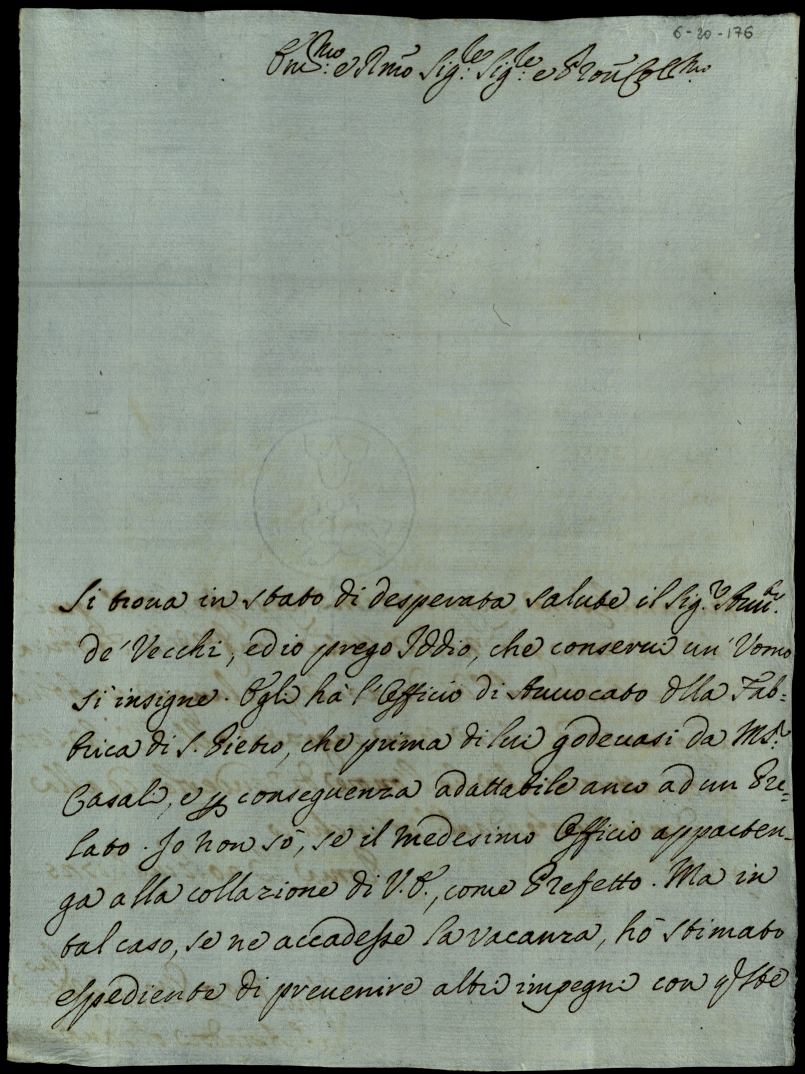 6-20-176
Em.mo e Rmo Sig.re Sig.re e Pron Coll.mo
Si trova in stato di desperata salute il Sig.r Avv.to
de' Vecchi, ed io prego Iddio, che conservi un' Uomo
sì insigne. Egli hà l'Officio di Avvocato dlla Fab=
brica di S. Pietro, che prima di lui godevasi da Ms.r
Casali, e p conseguenza adattabile anco ad un Pre=
lato. Io non sò, se il medesimo Officio apparten=
ga alla collazione di V.E., come Prefetto. Ma in
tal caso, se ne accadesse la vacanza, hò stimato
espediente di prevenire altri impegni con qste